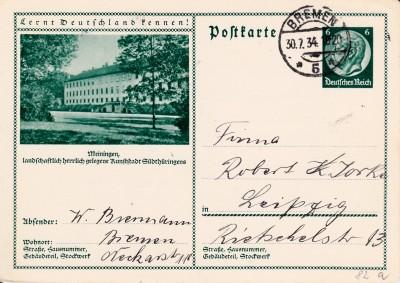 Lernt Deutschland kennen!
Meiningen,
landschaftlich herrlich gelegene Kunststadt Südthüringens
Absender: W. Bremann
Wohnort: Bremen
Straße, Hausnummer,
Gebäudeteil, Stockwerk
Postkarte
BREMEN
30.7.34
5
6 6
Deutsches Reich
Firma
Robert H.
in Leipzig
Rietschelstr 13
Straße, Hausnummer,
Gebäudeteil, Stockwerk
82 a